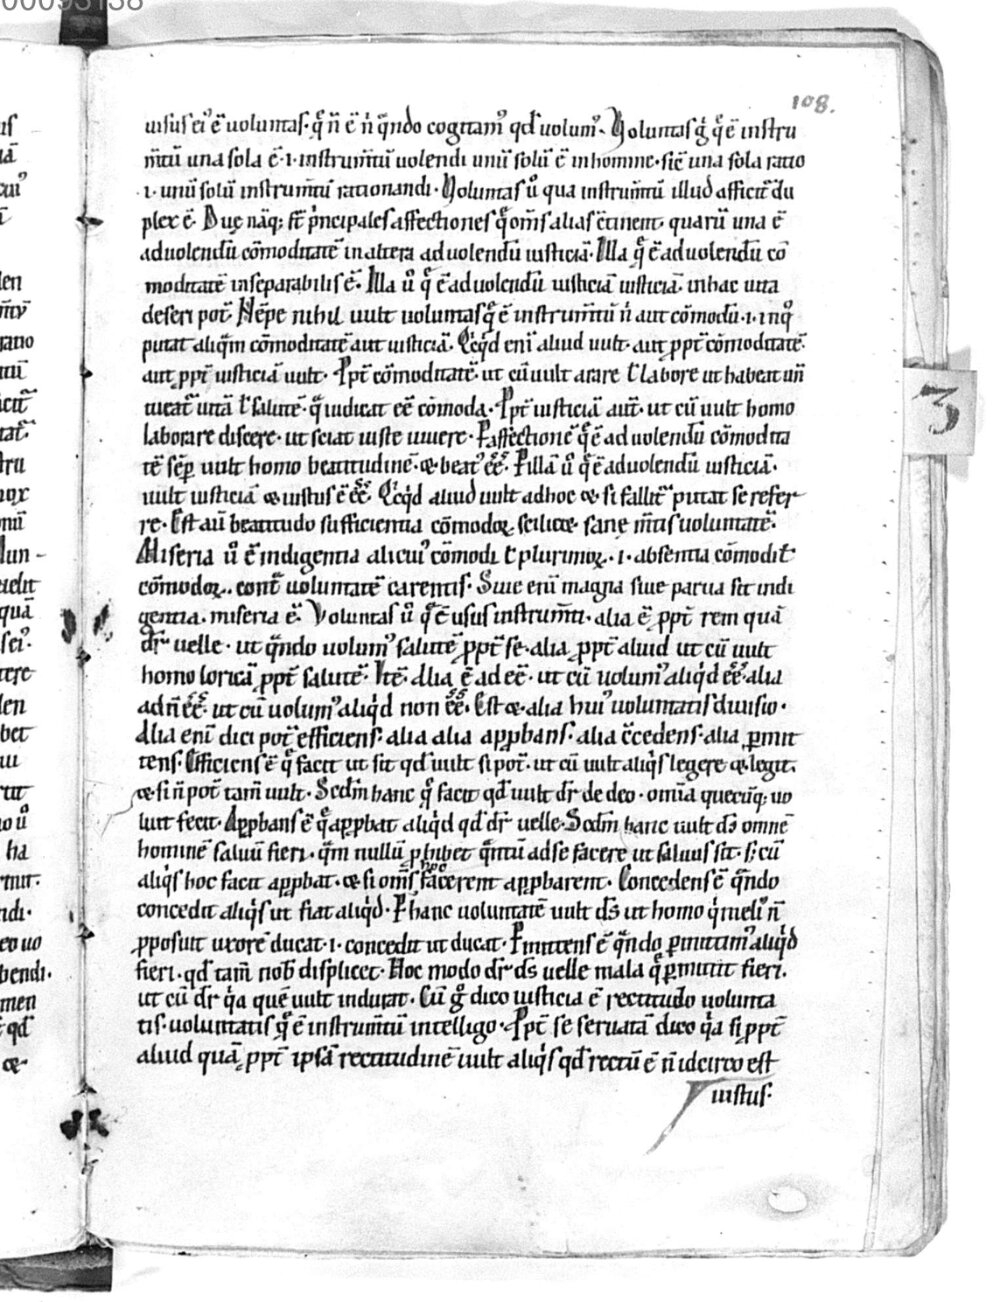 108.
uisus ei᷒ ē uoluntas· q̄ n̄ ē n̓ q̄ndo cogitam᷒ qđ uolum᷒· Voluntas g̓ q̄ ē instru
m̄tū una sola ē·i· instrum̄tū uolendi unū solū ē in homine· sic̄ una sola ratio
·i· unū solū instrum̄tū rationandi· Voluntas u̓ qua instrum̄tū illud afficit̄ du
plex ē· Duę nāq; st̄ p̓ncipales affectiones q̄ om̄s alias c̄tinent· quarū una ē
ad uolendū cōmoditatē in altera ad uolendū iusticiā· Illa q̄ ē ad uolendū cō
moditatē inseparabilis ē· Illa u̓ q̄ ē ad uolendū iusticiā iusticiā· in hac uita
deseri pot̄· Nēpe nihil uult uoluntas q̄ ē instrum̄tū n̓ aut cōmodū·i· inq᷒
putat aliq̄m cōmoditatē aut iusticiā· Qicq̓d eni᷒ aliud uult· aut ꝓpt̄ cōmoditatē
aut ꝓpt̄ iusticiā uult· Ꝓpt̄ cōmoditatē· ut cū uult arare ł labore ut habeat un̄
tueat᷑ uitā ł salutē· q̄ iudicat eē cōmoda· Ꝓpt̄ iusticiā aut̄· ut cū uult homo
laborare discere· ut sciat iuste uiuere· Ꝑ affectionē q̄ ē ad uolendū cōmodita
tē sēꝑ uult homo beatitudinē· ⁊ beat᷒ ēē· Ꝑ illā u̓ q̄ ē ad uolendū iusticiā·
uult iusticiā ⁊ iustus ē ēē· Qicq̓d aliud uult adhoc ⁊ si fallit᷑ putat se refer
re· Est aū beatitudo sufficientia cōmodoꝝ· scilicet sane m̄tis uoluntatē·
Miseria u̓ ē indigentia alicui᷒ cōmodi ł plurimoꝝ·i· absentia cōmodi ł
cōmodoꝝ· cont̄ uoluntatē carentis· Siue eni magna siue parua sit indi
gentia· miseria ē· Voluntas u̓ q̄ ē usus instrum̄ti· alia ē ꝓpt̄ rem quā
dr̄ uelle· ut q̄ndo uolum᷒ salutē ꝓpt̄ se· alia ꝓpt̄ aliud ut cū uult
homo loricā ꝓpt̄ salutē· Itē· Alia ē ad eē· ut cū uolum᷒ aliq̓d ēē· alia
ad n̄ ēē· ut cū uolum᷒ aliq̓d non ēē· Est ⁊ alia hui᷒ uoluntatis diuisio·
Alia eni dici pot̄ efficiens· alia alia apꝓbans· alia c̄cedens· alia ꝑmit
tens· Efficiens ē q̄ facit ut sit qđ uult si pot̄· ut cū uult aliq̓s legere ⁊ legit·
⁊ si n̄ pot̄ tam̄ uult· Scdm̄ hanc q̄ facit qđ uult dr̄ de deo· omīa quecūq; uo
luit fecit· Apꝓbans ē q̄ apꝓbat aliq̓d qđ dr̄ uelle· Scdm̄ hanc uult ds̄ omnē
hominē saluū fieri· q̄m nullū ꝓhibet q̄ntū ad se facere ut saluus sit· s; cū
aliq̓s hoc facit apꝓbat· ⁊ si om̄s hoc facerent apꝓbarent· Concedens ē q̄ndo
concedit aliq̓s ut fiat aliq̓d· Ꝑ hanc uoluntatē uult ds̄ ut homo q̓ meli᷒ n̄
ꝓposuit uxorē ducat·i· concedit ut ducat· Ꝑmittens ē q̄ndo ꝑmittim᷒ aliq̓d
fieri· qđ tam̄ nob̄ displicet· Hoc modo dr̄ ds̄ uelle mala q̄ ꝑmittit fieri·
ut cū dr̄ q̓a quē uult indurat· Cū g̊ dico iusticia ē rectitudo uolunta
tis· uoluntatis q̄ ē instrum̄tū intelligo· Ꝓpt̄ se seruatā dico q̓a si ꝓpt̄
aliud quā ꝓpt̄ ipsā rectitudinē uult aliq̓s qđ rectū ē n̄ idcirco est
iustus·
3